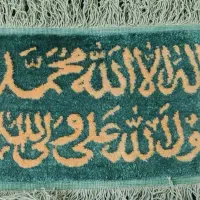 اله الا الله محمد
ول الله علی ولی الله